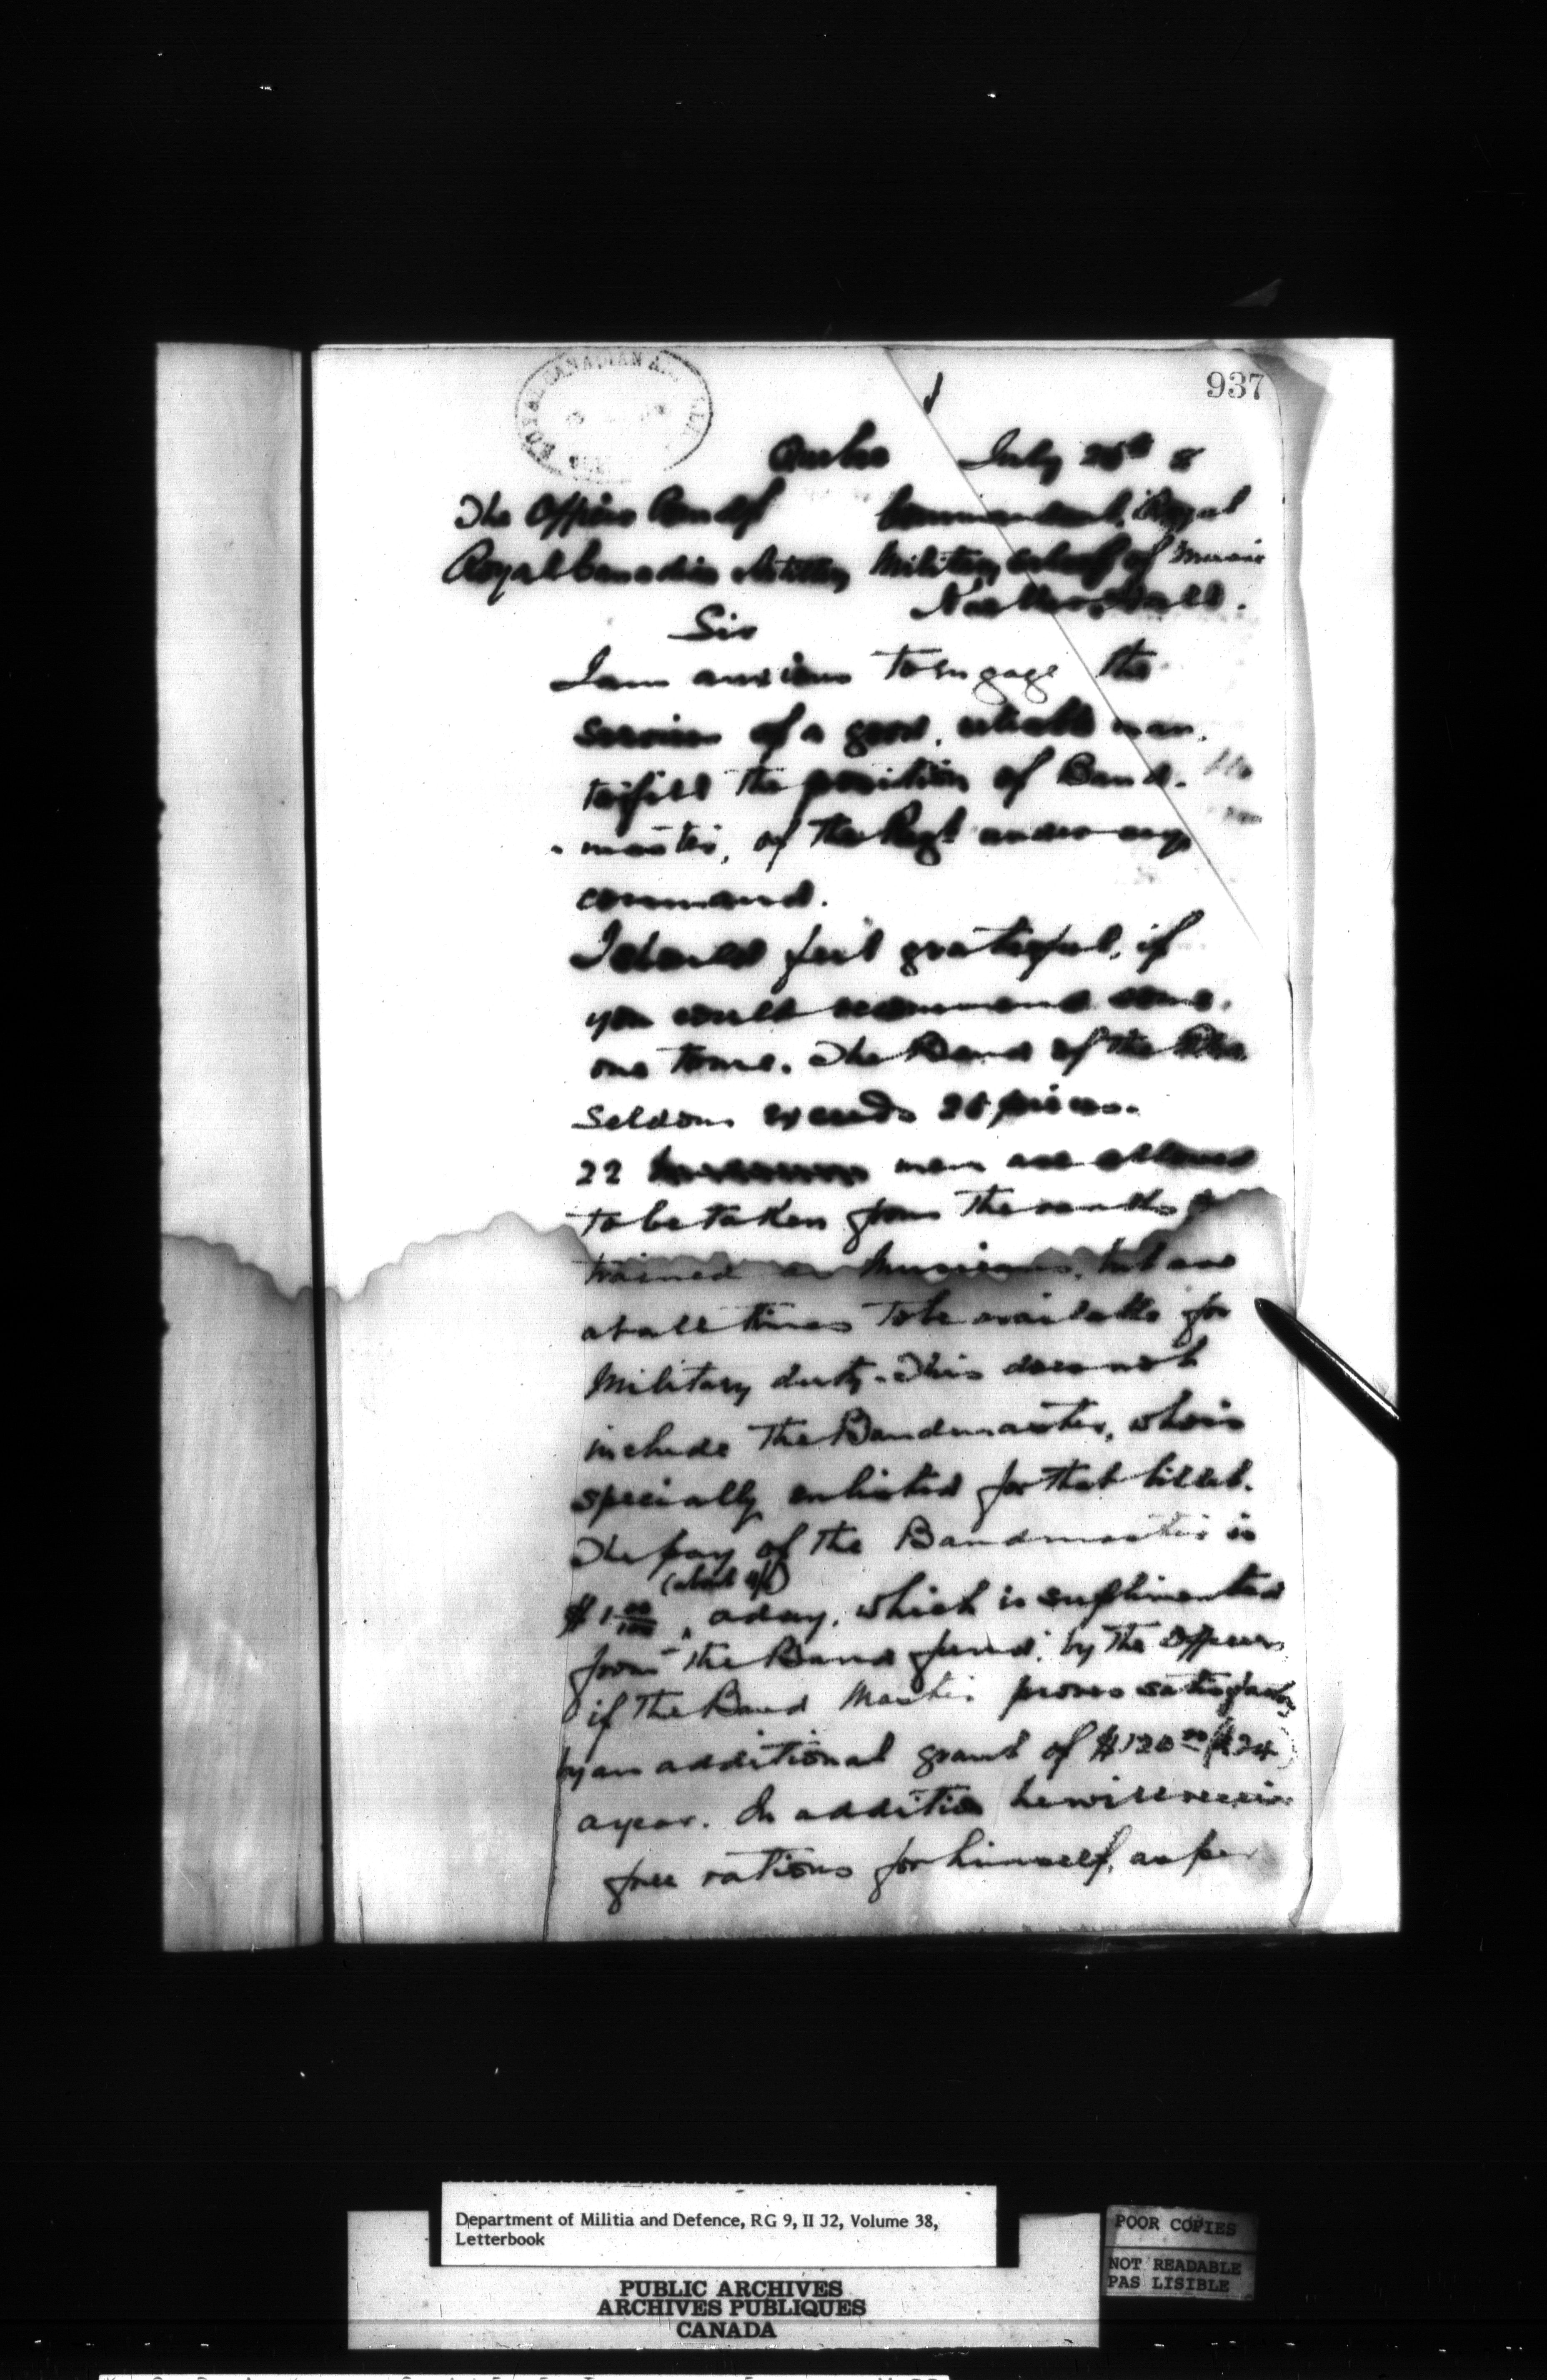 937
ROYAL CANADIAN
Quebec July 25th 8
The Officer Comdg Commandant, Royal
Royal Canadian Artillery Military School of Music
Neller Hall.
Sir
I am anxious to engage the
services of a good, reliable man.
to fill the position of Band-
-master, of the Regt under my
command.
I should feel grateful, if
you could recommend some.
one to me. The Band of the
Seldom exceeds 25 pieces.
22 men are allowed
to be taken from the ranks &
trained as Musicians, but are
at all times to be available for
Military duty. This does not
include the Bandmaster, who is
specially enlisted for that billet.
The pay of the Bandmaster is
(about 4/)
$1 00/100 ^ a day, which is suplimented
from the Band fund, by the Officers
if the Band Master proves satisfactory
by an additional grant of $120 00 (£24)
a year. In addition he will receive
free rations for himself, as per
Department of Militia and Defence, RG 9, II J2, Volume 38,
Letterbook
PUBLIC ARCHIVES
ARCHIVES PUBLIQUES
CANADA
POOR COPIES
NOT READABLE
PAS LISIBLE